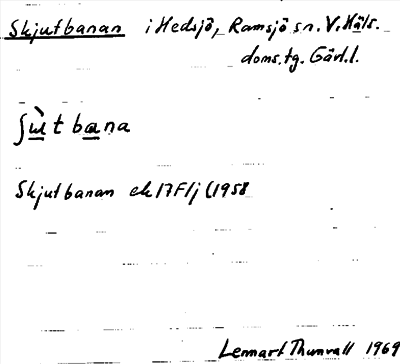 Skjutbanan i Hedsjö, Ramsjö sn. V. Häls.
doms.tg. Gävl.l.
ʃɯ̀t bana
Skjutbanan ek 17F1j (1958
Lennart Thunvall 1969